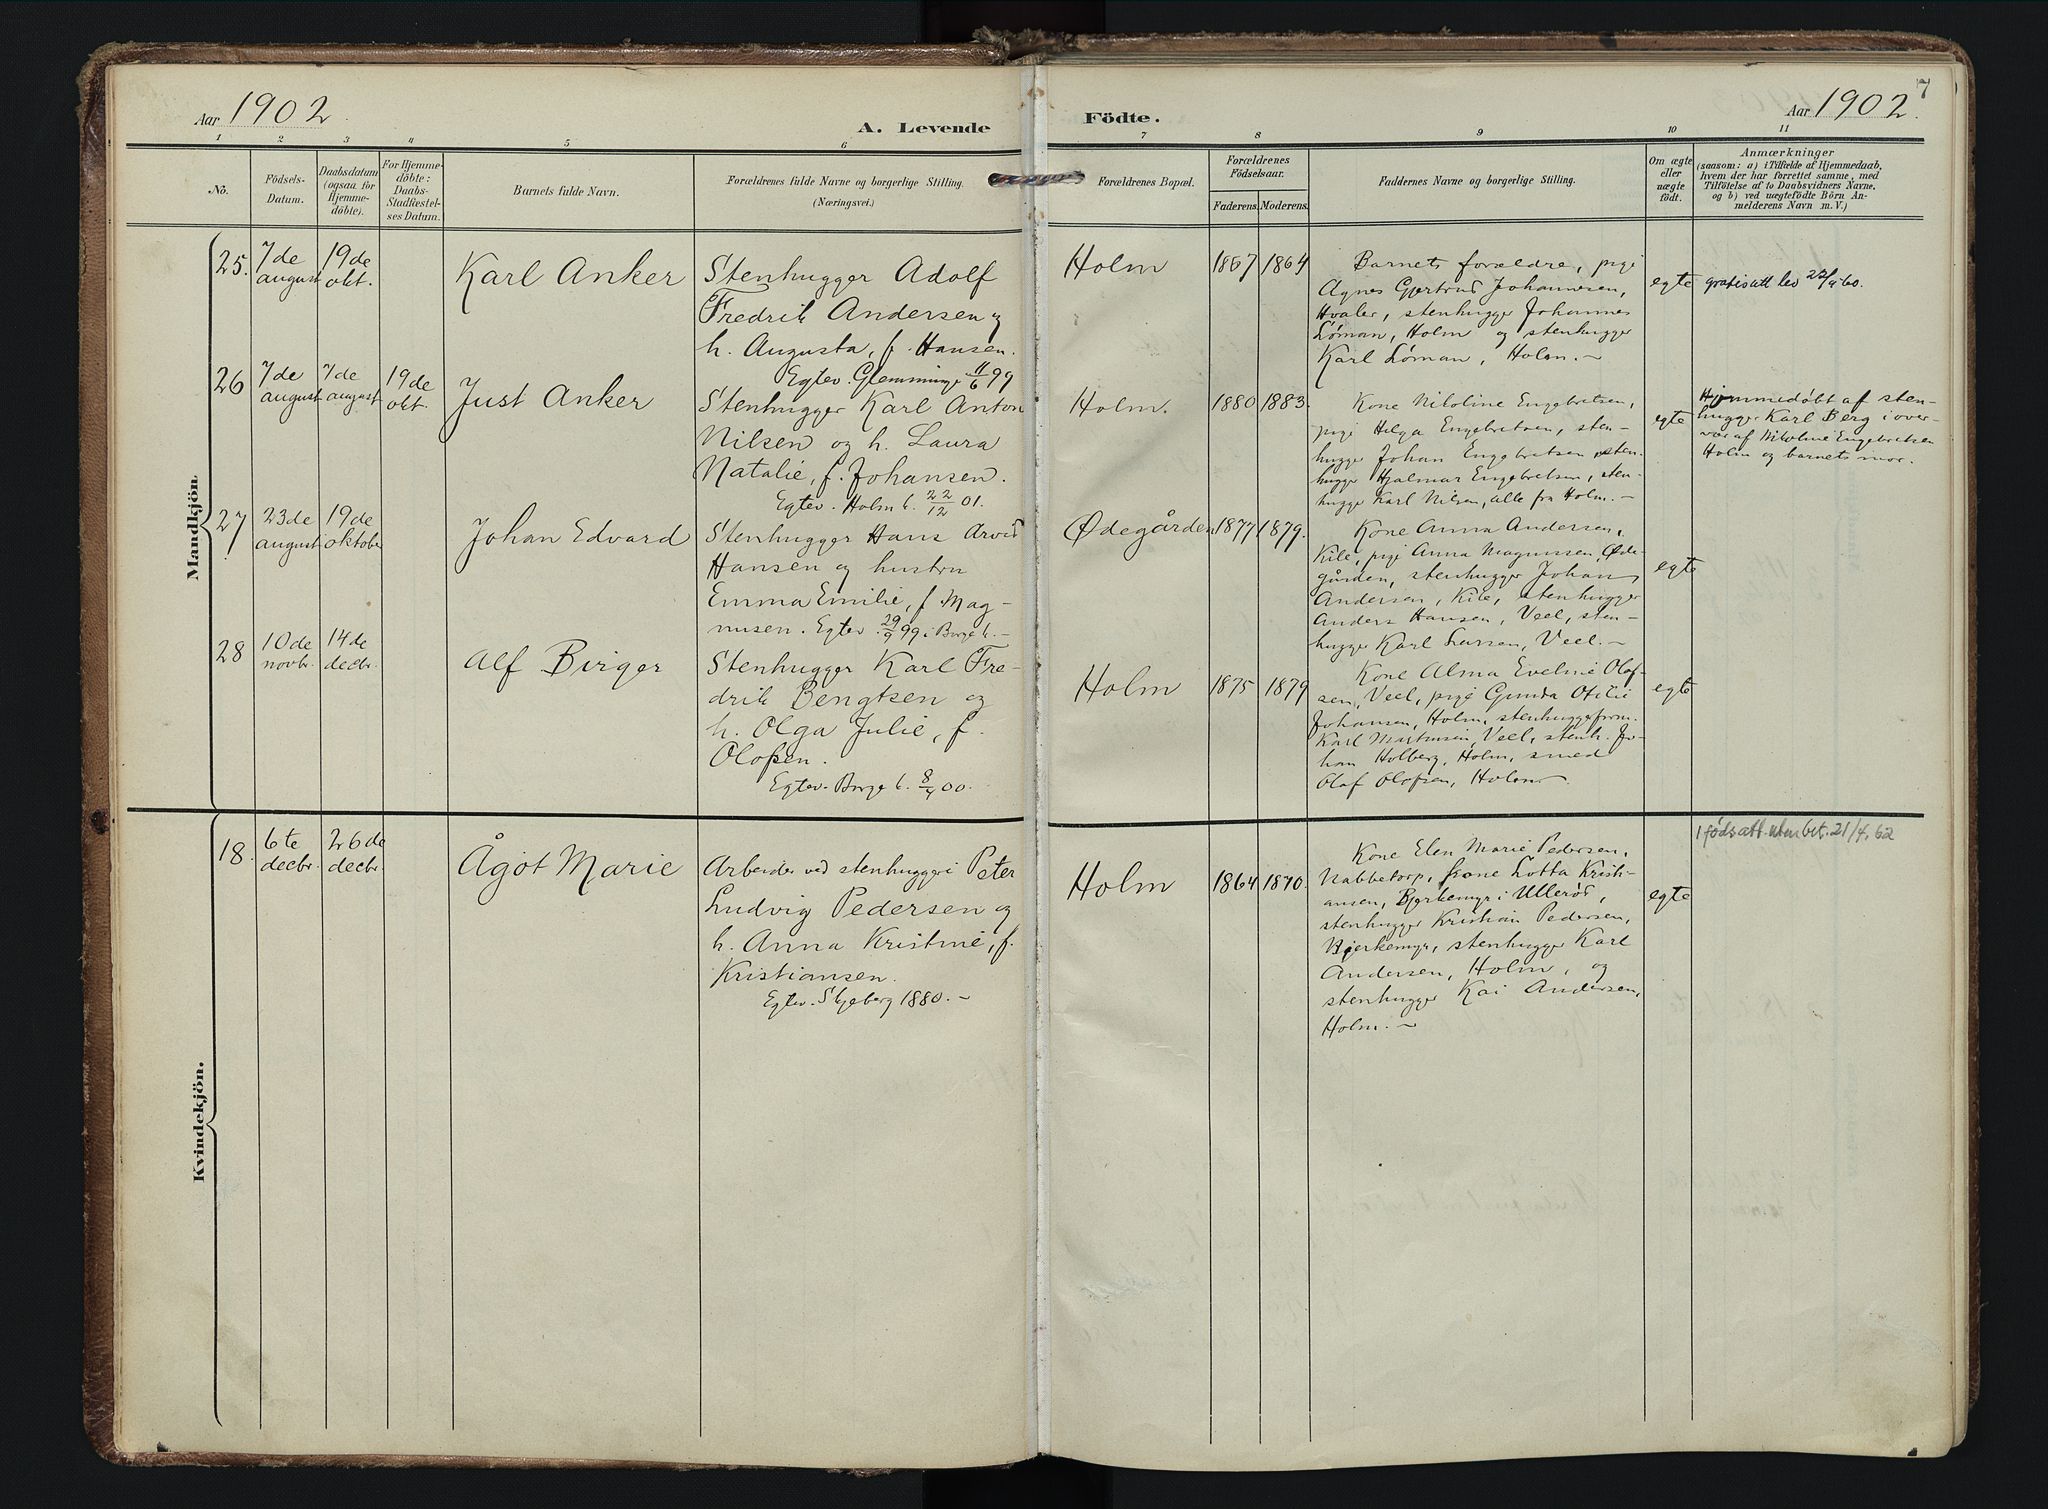 Aar 1902
A. Levende
Födte.
Aar 1902.
7
1 2 3 4 5 6 7 8 9 10 11
No.
Födsels-
Datum.
Daabsdatum
(ogsaa for
Hjemme-
döbte).
For Hjemme-
döbte:
Daabs-
Stadfæstel-
ses Datum.
Barnets fulde Navn.
Forældrenes fulde Navne og borgerlige Stilling.
(Næringsvei.)
Forældrenes Bopæl.
Forældrenes
Födselsaar.
Faderens. Moderens.
Faddernes Navne og borgerlige Stilling.
Om ægte
eller
uægte
födt.
Anmærkninger
(saasom: a) i Tilfælde af Hjemmedaab,
hvem der har forrettet samme, med
Tilföielse af to Daabsvidners Navne,
og b) ved uægtefödte Börn An-
melderens Navn m. V.)
Mandkjön.
25.
7de
august
19de
okt.
Karl Anker
Stenhugger Adolf
Fredrik Andersen og
h. Augusta, f. Hansen.
Egtev. Glemminge 11/6 99
Holm
1867
1864
Barnets forældre, pige
Agnes Gjertrud Johannesen,
Hvaler, stenhugger Johannes
Löman, Holm og stenhugger
Karl Löman, Holm.
egte
gratisatt lev 22/9 60.
26
7de
august
7de
august
19de
okt.
Just Anker
Stenhugger Karl Anton
Nilsen og h. Laura
Natalie, f. Johansen.
Egtev. Holm k. 22/12 01.
Holm.
1880
1883.
Kone Nikoline Engebretsen,
pige Helga Engebretsen, sten-
hugger Johan Engebretsen, sten-
hugger Hjalmar Engebretsen, sten-
hugger Karl Nilsen, alle fra Holm.
egte
Hjemmedøbt af sten-
hugger Karl Berg i over-
vær af Nikoline Engebretsen
Holm og barnets mor.
27
23de
august
19de
oktober
Johan Edvard
Stenhugger Hans Arvid
Hansen og hustru
Emma Emilie, f. Mag-
nusen. Egtev. 29/9 99 i Borge k.
Ødegården
1877
1879.
Kone Anna Andersen,
Kile, pige Anna Magnussen, Øde-
gården, stenhugger Johan
Andersen, Kile, stenhugger
Anders Hansen, Veel, sten-
hugger Karl Larsen, Veel.
egte
28
10de
novbr.
14de
decbr.
Alf Birger
Stenhugger Karl Fre-
drik Bengtsen og
h. Olga Julie, f.
Olofsen.
Egtev. Borge k. 8/4 00.
Holm
1875
1879
Kone Alma Eveline Olof-
sen, Veel, pige Gunda Otilie
Johansen, Holm, stenhuggeform.
Karl Martinsen, Veel, stenh. Jo-
han Holberg, Holm, smed
Olaf Olofsen, Holm
egte
Kvindekjön.
18.
6te
decbr.
26de
decbr.
Ågot Marie
Arbeider ved stenhuggeri Peter
Ludvig Pedersen og
h. Anna Kristine, f.
Kristiansen.
Egtev. Skjeberg 1880.
Holm
1864
1870.
Kone Elen Marie Pedersen,
Nabbetorp, kone Lotta Kristi-
ansen, Bjerkemyr i Ulleröd,
stenhugger Kristian Pedersen,
Bjerkemyr, stenhugger Karl
Andersen, Holm, og
stenhugger Kai Andersen,
Holm.
egte
1 föds att. uten bet. 21/4. 62